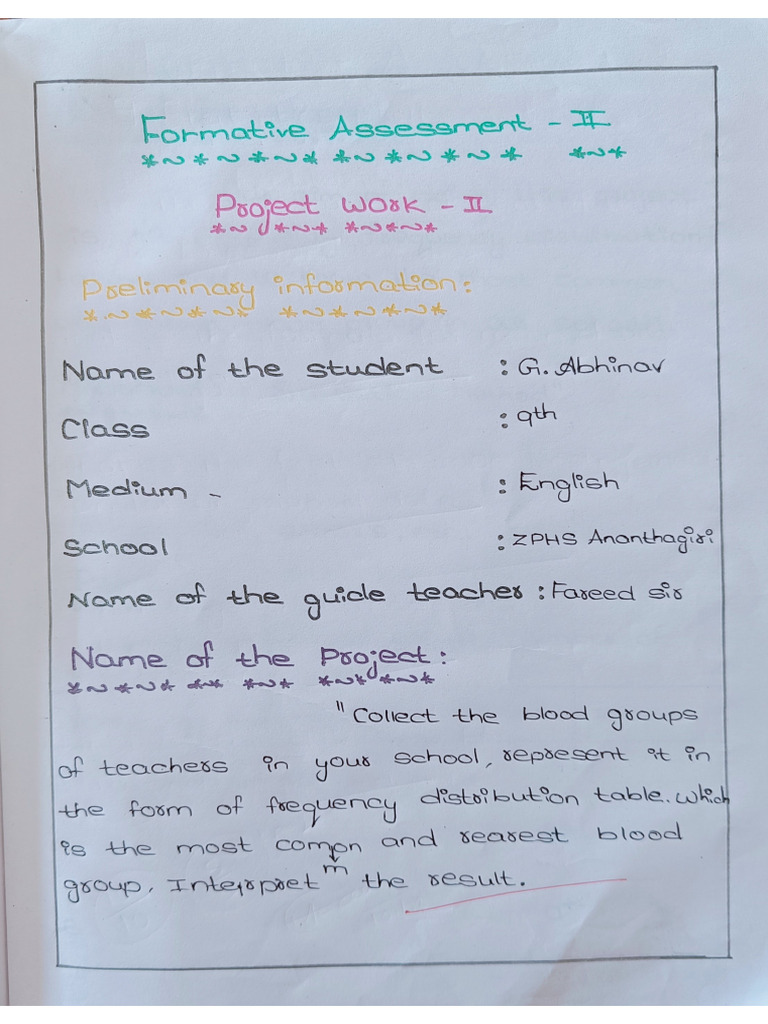 Formative Assessment - II
Project Work - II
Preliminary information:
Name of the student : G. Abhinav
Class : 9th
Medium - : English
School : ZPHS Ananthagiri
Name of the guide teacher : Fareed sir
Name of the Project:
"Collect the blood groups
of teachers in your school, represent it in
the form of frequency distribution table. which
is the most comon and rearest blood
m
group. Interpret the result.